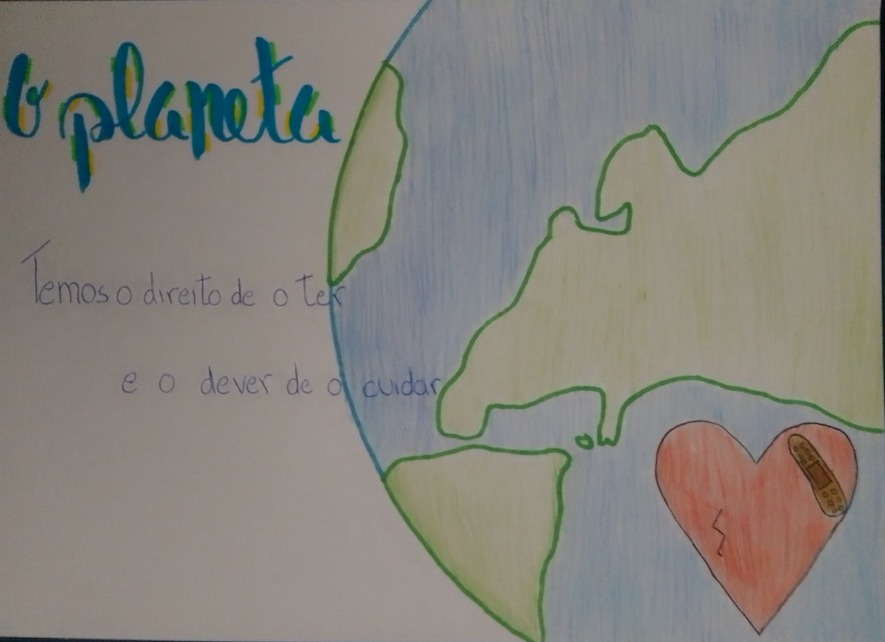 O planeta
Temos o direito de o ter
e o dever de o cuidar